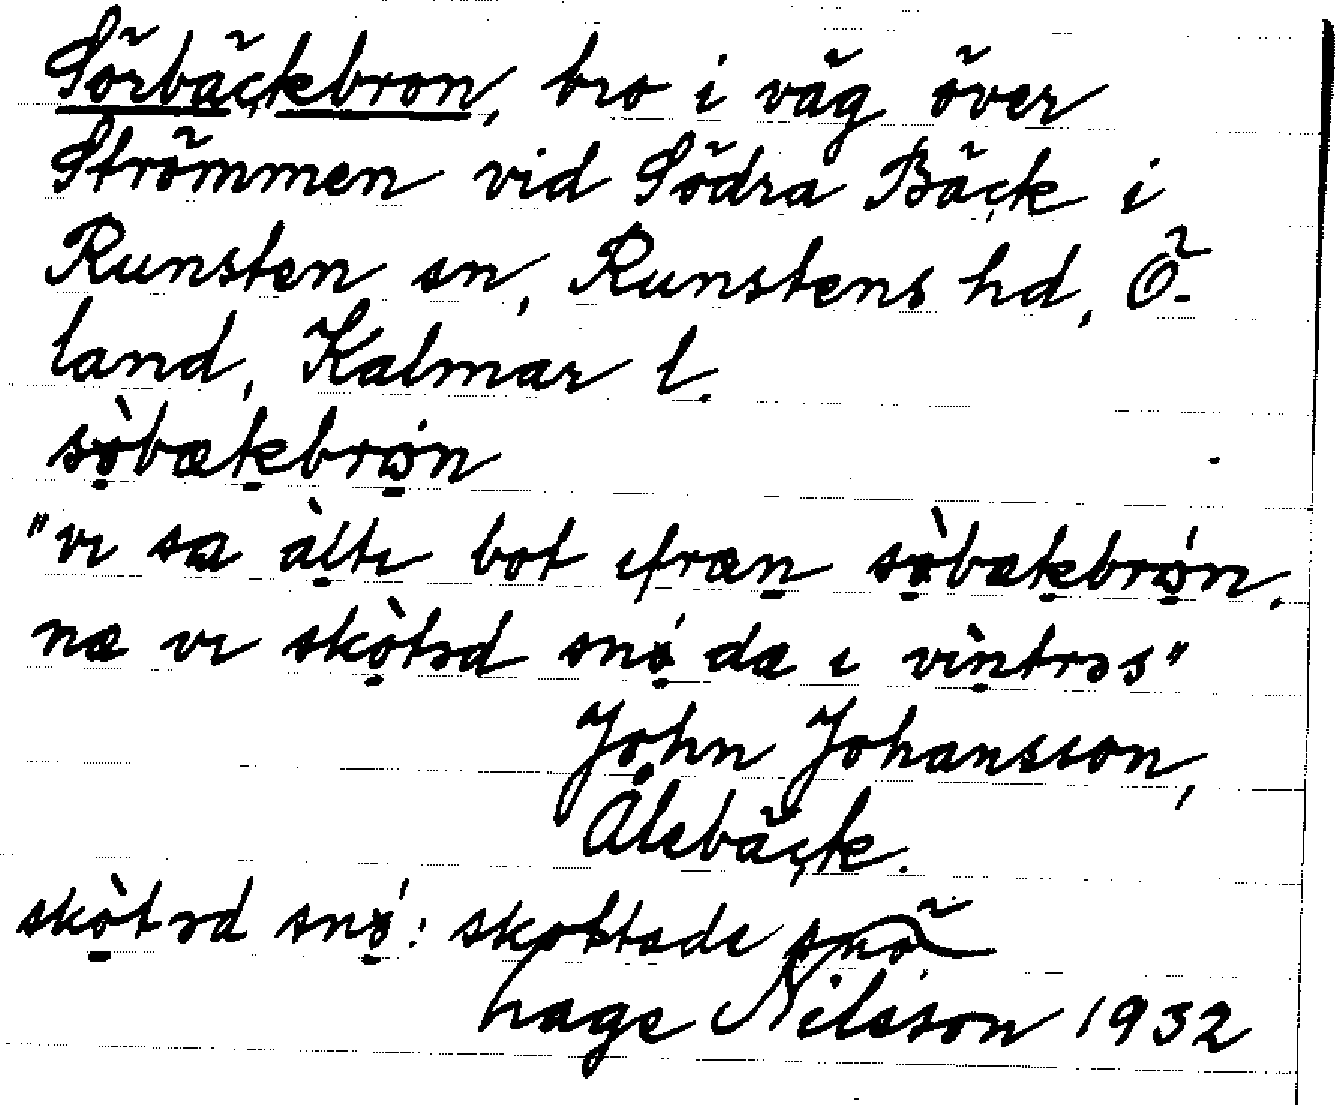 Sörbäckbron, bro i väg över
Strömmen vid Södra Bäck i
Runsten sn, Runstens hd, Ö-
land, Kalmar l.
sø̀bækbrøn
"vɪ sa àltɪ bot ɪfræn sø̀bækbrǿn,
næ vɪ skø̀təd snǿ da ɪ vìntrəs"
John Johansson,
Ålebäck.
skø̀təd snǿ: skottade snö
hage Nilsson 1932